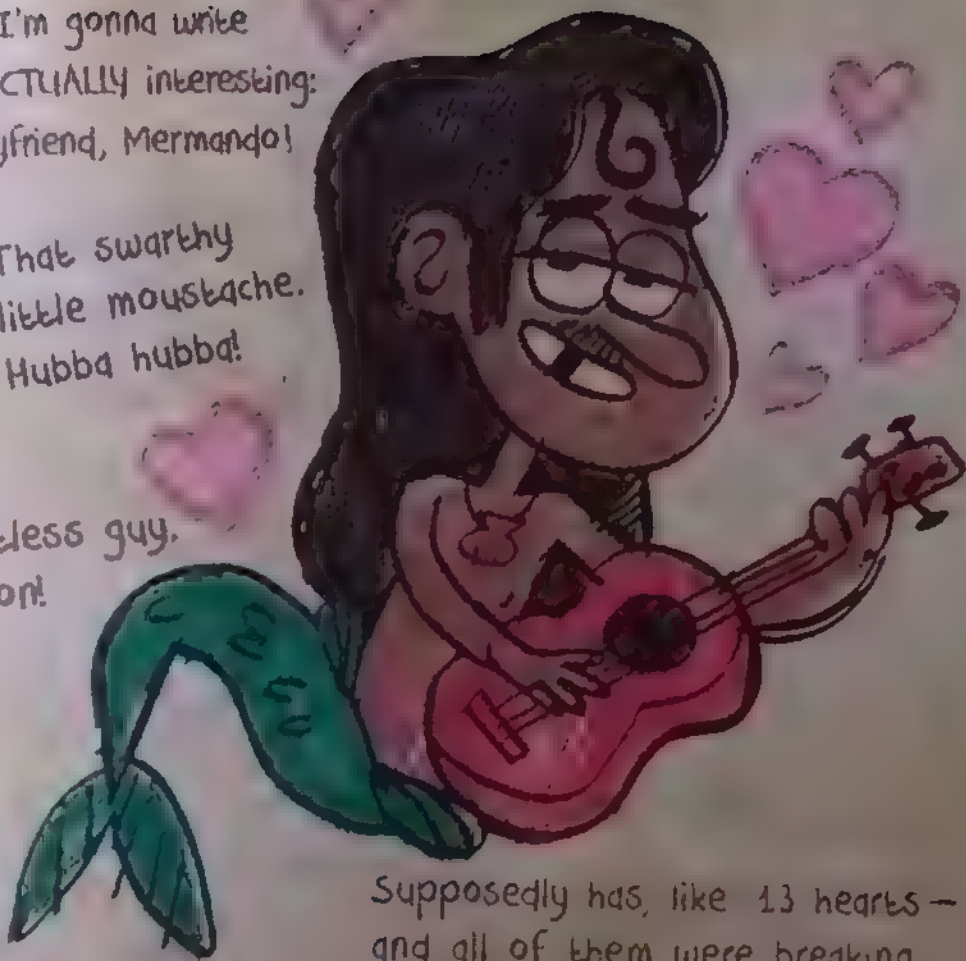 I'm gonna write
CTUALLY interesting:
yfriend, Mermando!
That swarthy
little moustache.
Hubba hubba!
less guy.
on!
Supposedly has, like 13 hearts —
and all of them were breaking